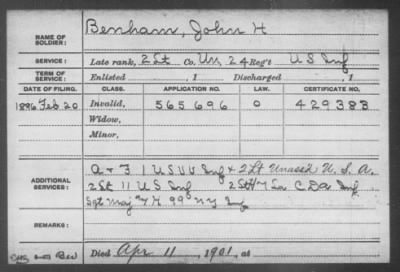 NAME OF SOLDIER: Benham, John H
SERVICE: Late rank, 2 Lt Co. Un, 24 Reg't U S Inf
TERM OF SERVICE: Enlisted , 1 Discharged , 1
DATE OF FILING. CLASS. APPLICATION NO. LAW. CERTIFICATE NO.
1896 Feb. 20 Invalid, 565696 O 429383
Widow,
Minor,
ADDITIONAL SERVICES:
1 U S V V Inf & 2 Lt Unass'd U.S.A.
2 Lt 11 U S Inf
Sgt Maj 99 N Y Inf
REMARKS:
Died Apr 11, 1901, at